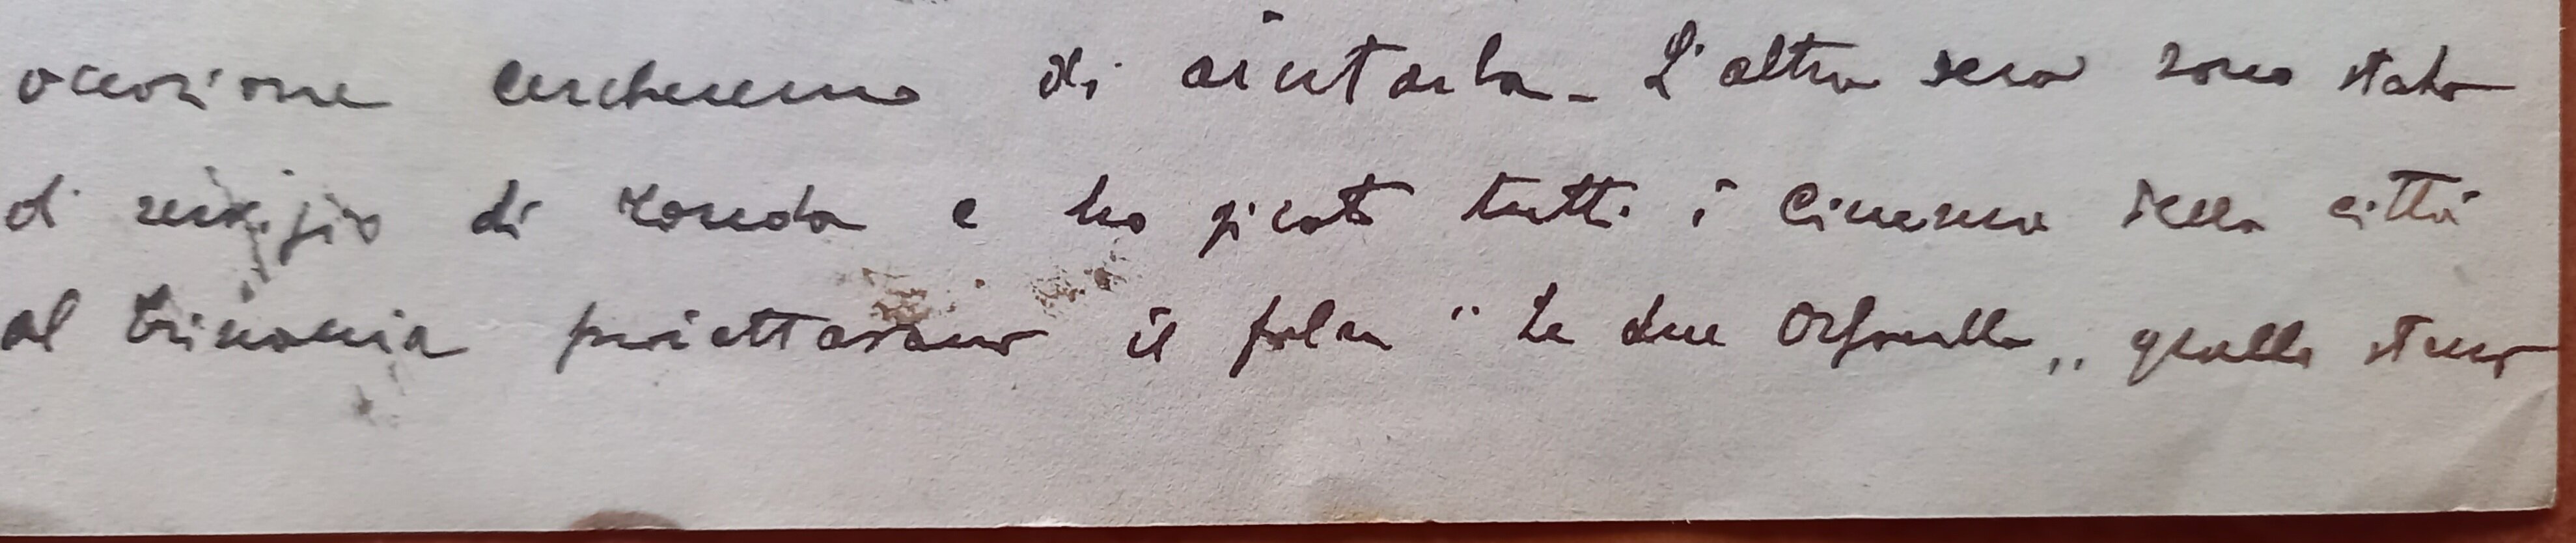 occasione cercheremo di aiutarla - L'altra sera sono stato
di servizio di ronda e ho girato tutti i cinema della città
al proiettavano il film "Le due Orfanelle" quello stesso